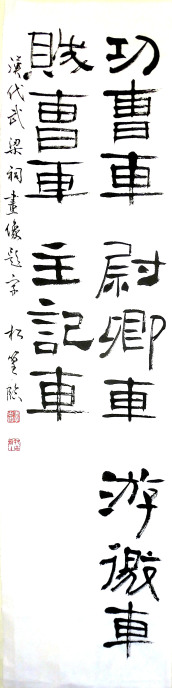 功曹車 尉卿車 游徼車
賊曹車 主記車
漢代武梁祠畫像題字 松筌臨